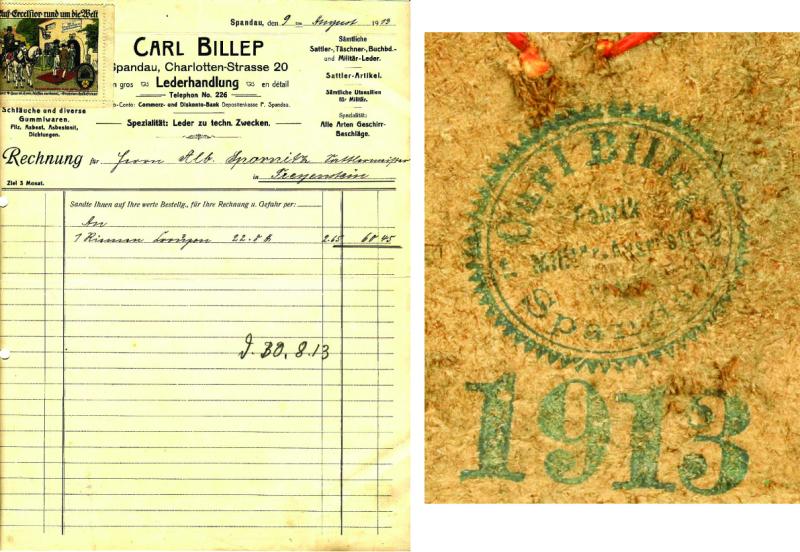 Auf Excelsior rund um die Welt
Spandau, den 9 ten August 1913
CARL BILLEP
Spandau, Charlotten-Strasse 20
en gros Lederhandlung en détail
Telephon No. 226
-Conto: Commerz- und Diskonto-Bank Depositenkasse P. Spandau.
Spezialität: Leder zu techn. Zwecken.
Schläuche und diverse
Gummiwaren.
Filz, Asbest, Asbesionit,
Dichtungen.
Sämtliche
Sattler-, Täschner-, Buchbd.-
und Militär-Leder.
Sattler-Artikel.
Sämtliche Utensilien
für Militär.
Spezialität:
Alle Arten Geschirr-
Beschläge.
Rechnung für Herrn Alb. Spornitz Sattlermeister
in Freyenstein
Ziel 3 Monat.
Sandte Ihnen auf Ihre werte Bestellg., für Ihre Rechnung u. Gefahr per:
An
1 Riemen Croupon 22.8 2.65 60 45
d. 30. 8. 13
CARL BILLEP
Fabrik
Militär-
Spandau
1913